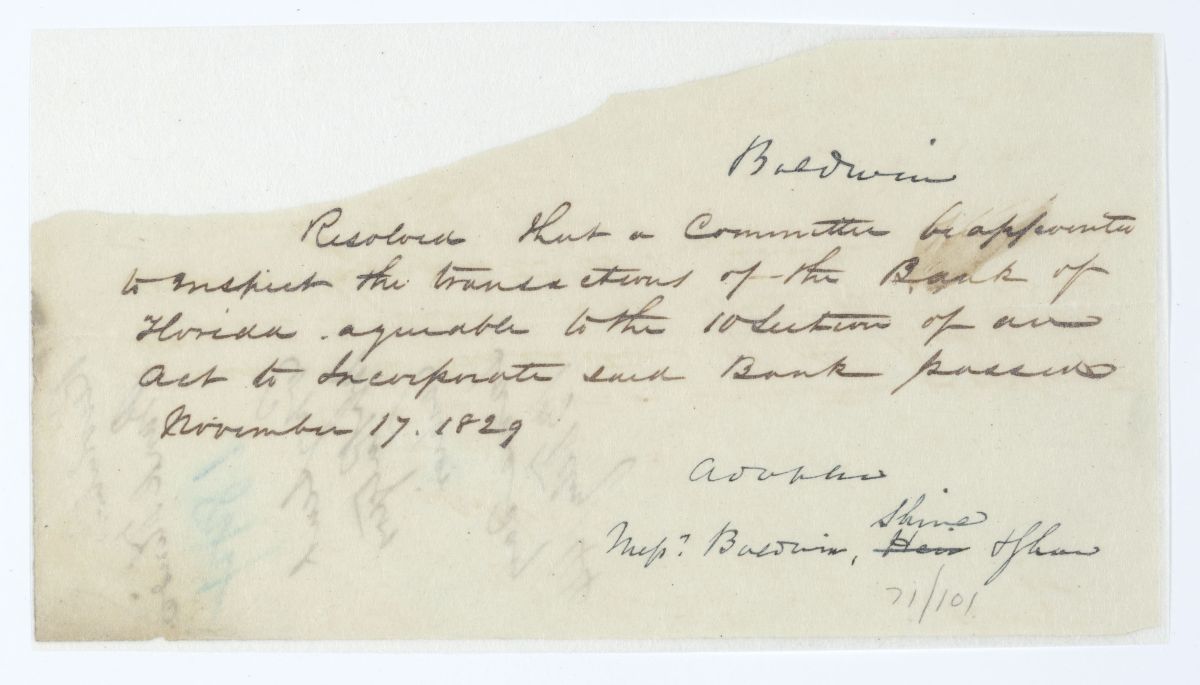 Baldwin
Resolved that a Committee be appointed
to inspect the transactions of the Bank of
Florida agreeable to the 10 Section of an
Act to Incorporate said Bank passed
November 17. 1829
Adopted
Shine
Messrs Baldwin, &
71/101